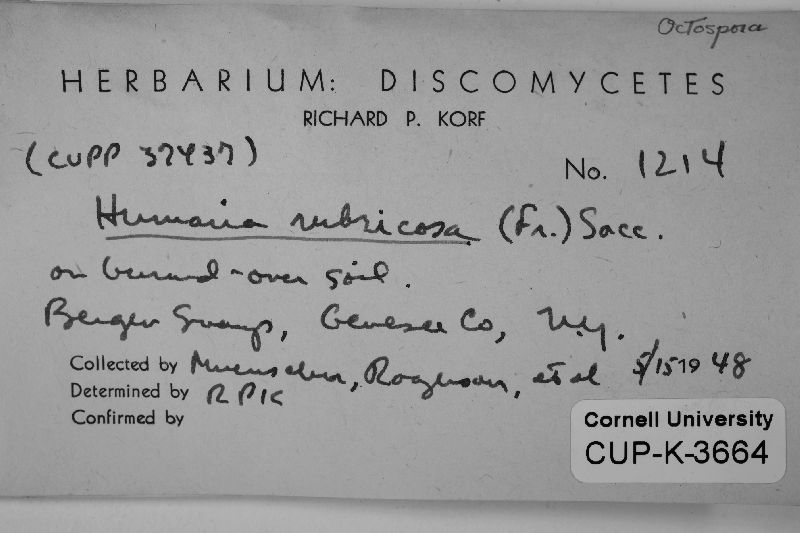 Octospora
HERBARIUM: DISCOMYCETES
RICHARD P. KORF
(CUPP 37437)
No. 1214
Humaria rubricosa (Fr.) Sacc.
on burned-over soil.
Bergen Swamp, Genesee Co, N.Y.
Collected by Muenscher, Rogerson, et al 5/15 1948
Determined by RPK
Confirmed by
Cornell University
CUP-K-3664